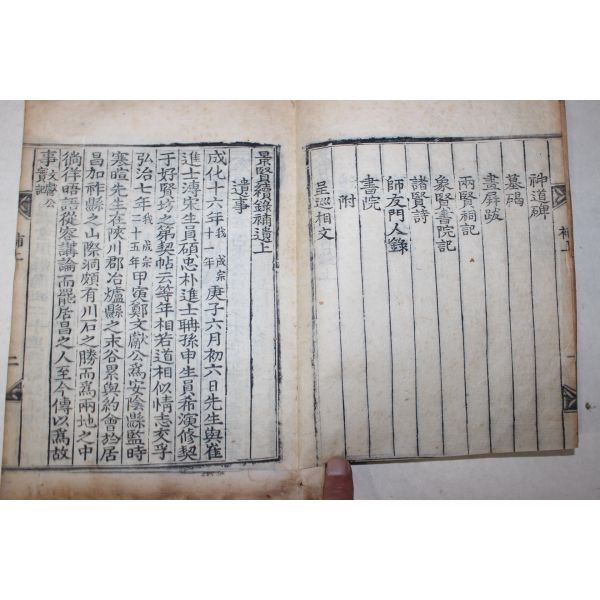 神道碑
墓碣
畫屏跋
兩賢祠記
象賢書院記
諸賢詩
師友門人錄
書院
附
呈巡相文
補上
一
景賢續錄補遺上
遺事
成化十六年我成宗十一年庚子六月初六日先生與崔
進士溥宋生員碩忠朴進士聃孫申生員希演修契
于好賢坊之第契帖云等年相若道相似情志交孚
弘治七年我成宗二十五年甲寅鄭文獻公爲安陰縣監時
寒暄先生在陜川郡冶爐縣之末谷累與約會於居
昌加祚縣之山際洞頗有川石之勝而爲兩地之中
徜徉晤語從容講論而罷居昌之人至今傳以爲故
事
補上
二